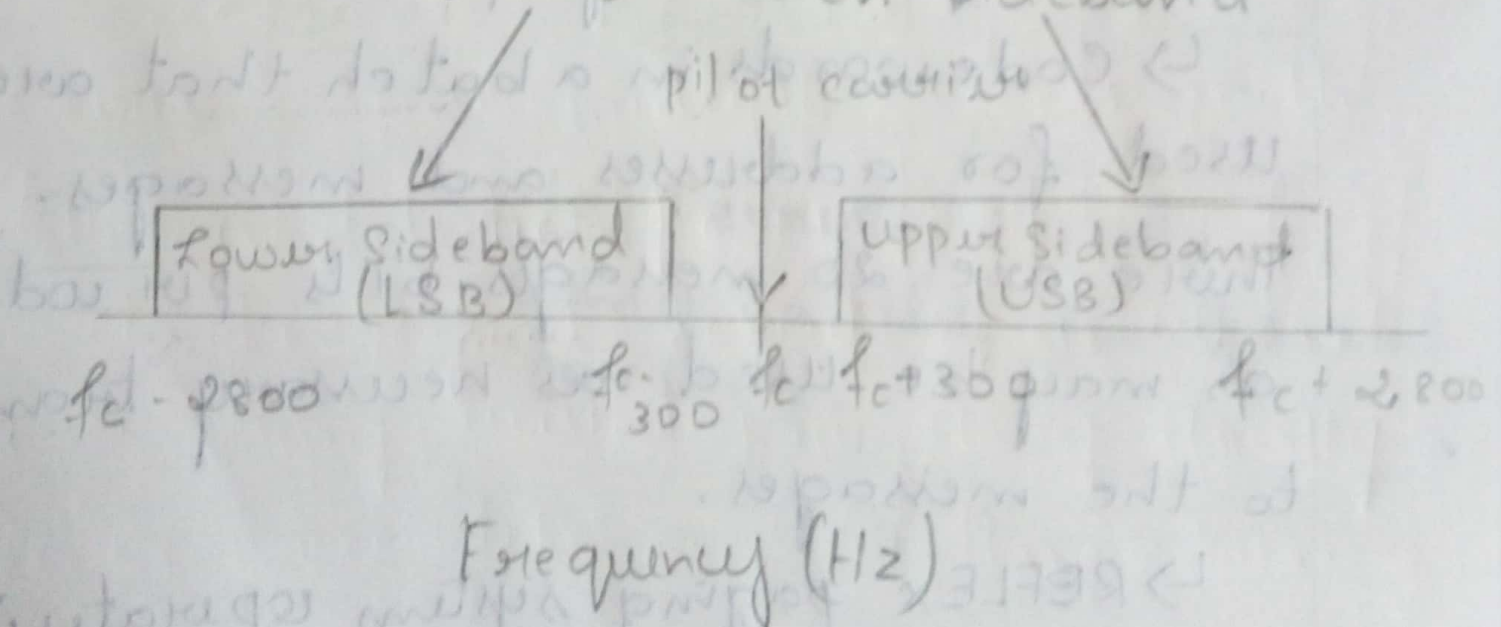 pilot carrier
Lower Sideband
(LSB)
Upper Sideband
(USB)
fc - 2800
fc - 300
fc
fc + 300
fc + 2,800
Frequency (Hz)